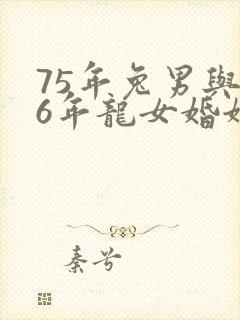 75年兔男與
6年龍女婚
秦兮